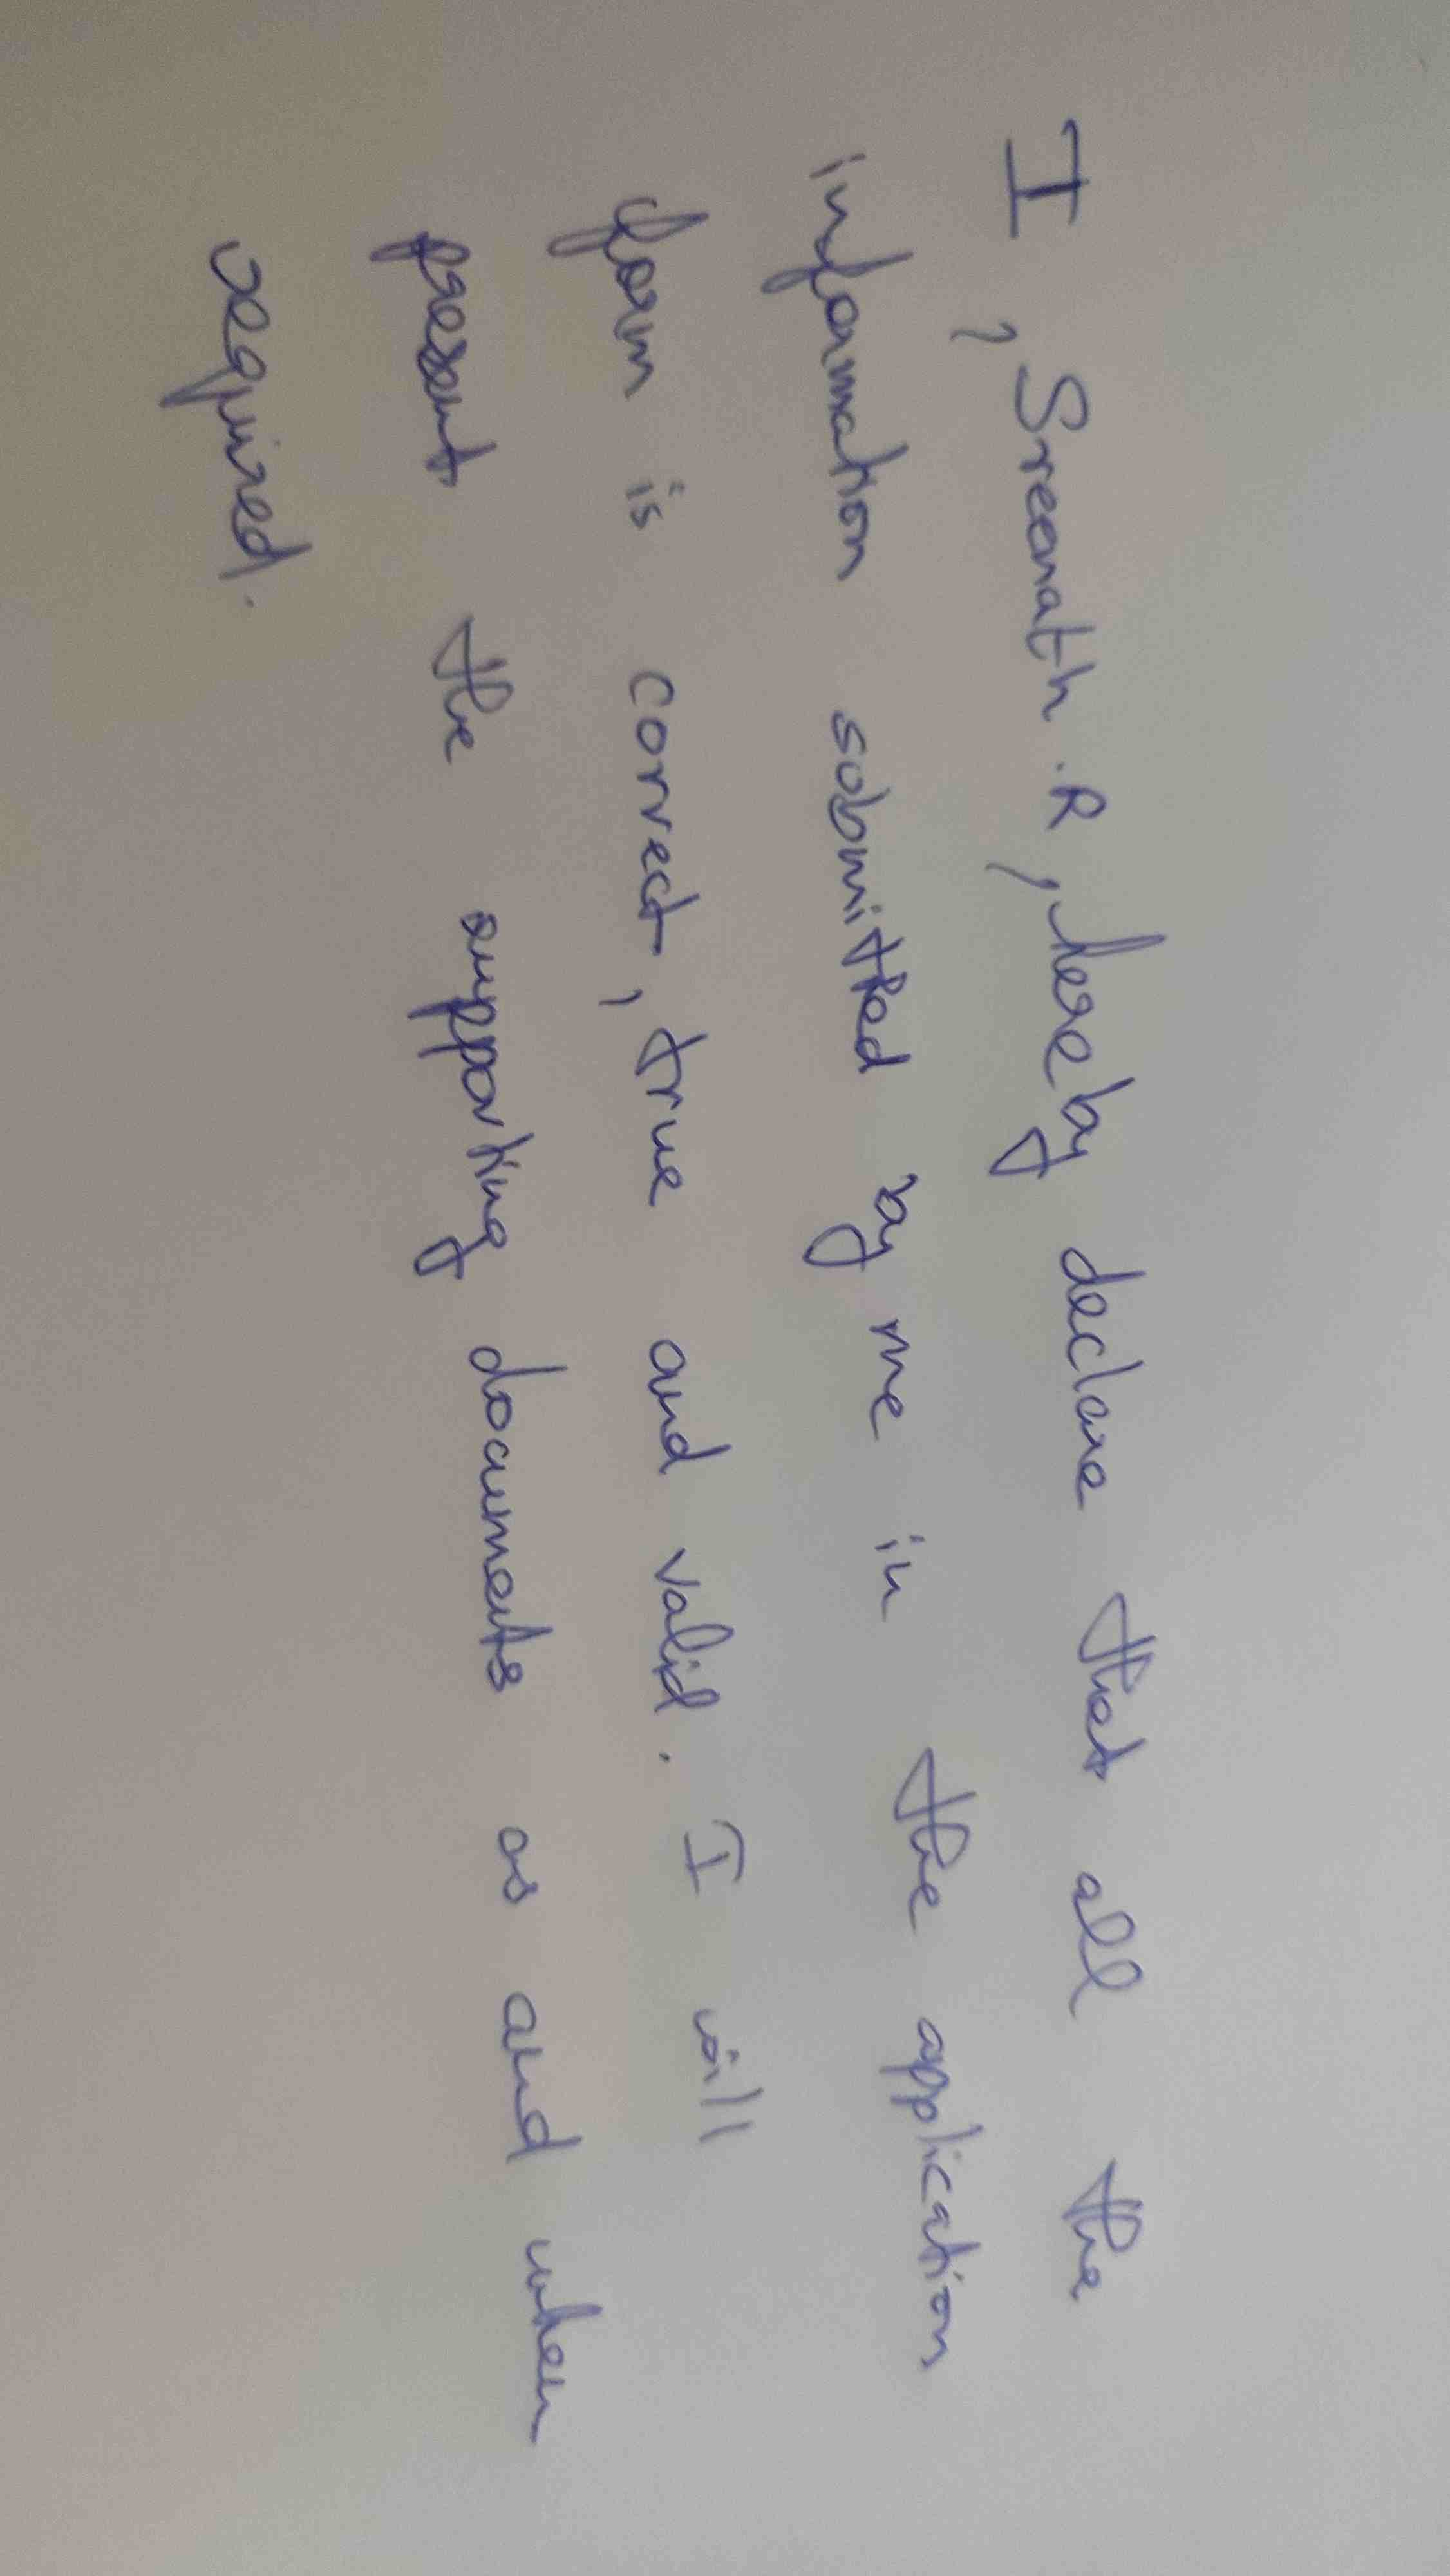 I, Sreenath .R, hereby declare that all the
information submitted by me in the application
form is correct, true and valid. I will
present the supporting documents as and when
required.